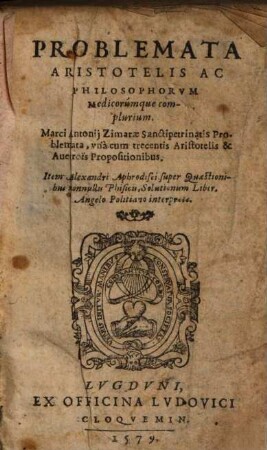 PROBLEMATA
ARISTOTELIS AC
PHILOSOPHORVM
Medicorúmque com-
plurium.
Marci Antonij Zimaræ Sanctipetrinatis Pro-
blemata, vnà cum trecentis Aristotelis &
Auerrois Propositionibus.
Item Alexandri Aphrodisei super Quæstioni-
bus nonnullis Phisicis, Solutionum Liber,
Angelo Politiano interprete.
LVGDVNI,
EX OFFICINA LVDOVICI
CLOQVEMIN.
1579.